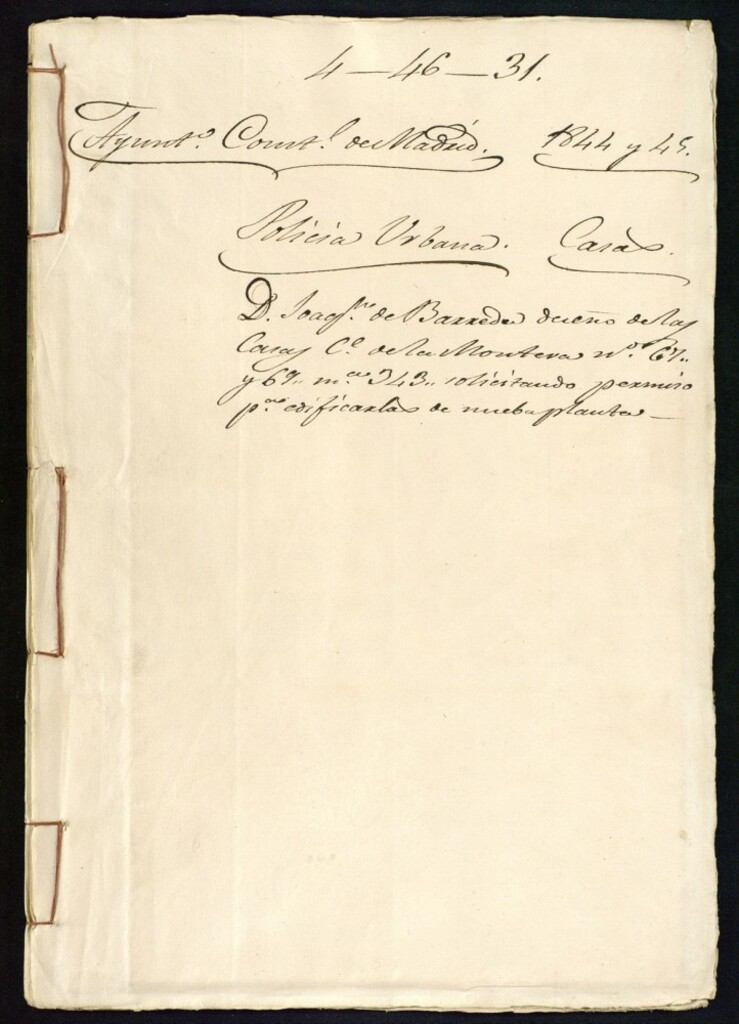 4 — 46 — 31.
Ayunt.º Const.l de Madrid. 1844 y 45.
Policia Urbana. Casas.
D. Joaq.n de Barreda dueño de las
Casas C.e de la Montera n.os
y m.na 343.. solicitando permiso
p.ª edificarlas de nueba planta —